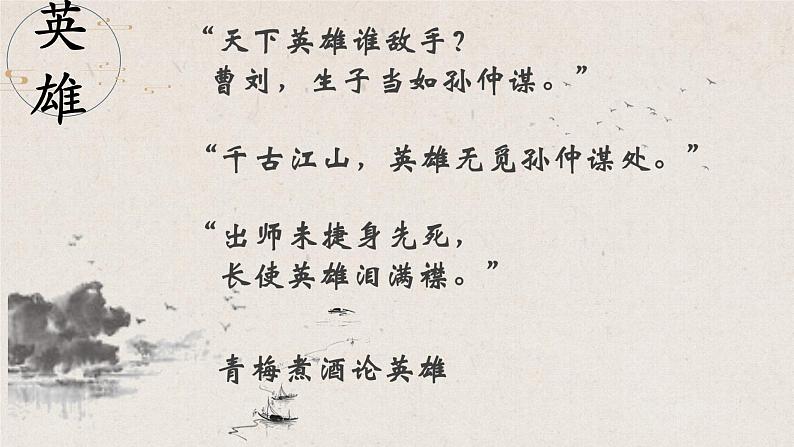 英雄
“天下英雄谁敌手？
曹刘，生子当如孙仲谋。”
“千古江山，英雄无觅孙仲谋处。”
“出师未捷身先死，
长使英雄泪满襟。”
青梅煮酒论英雄